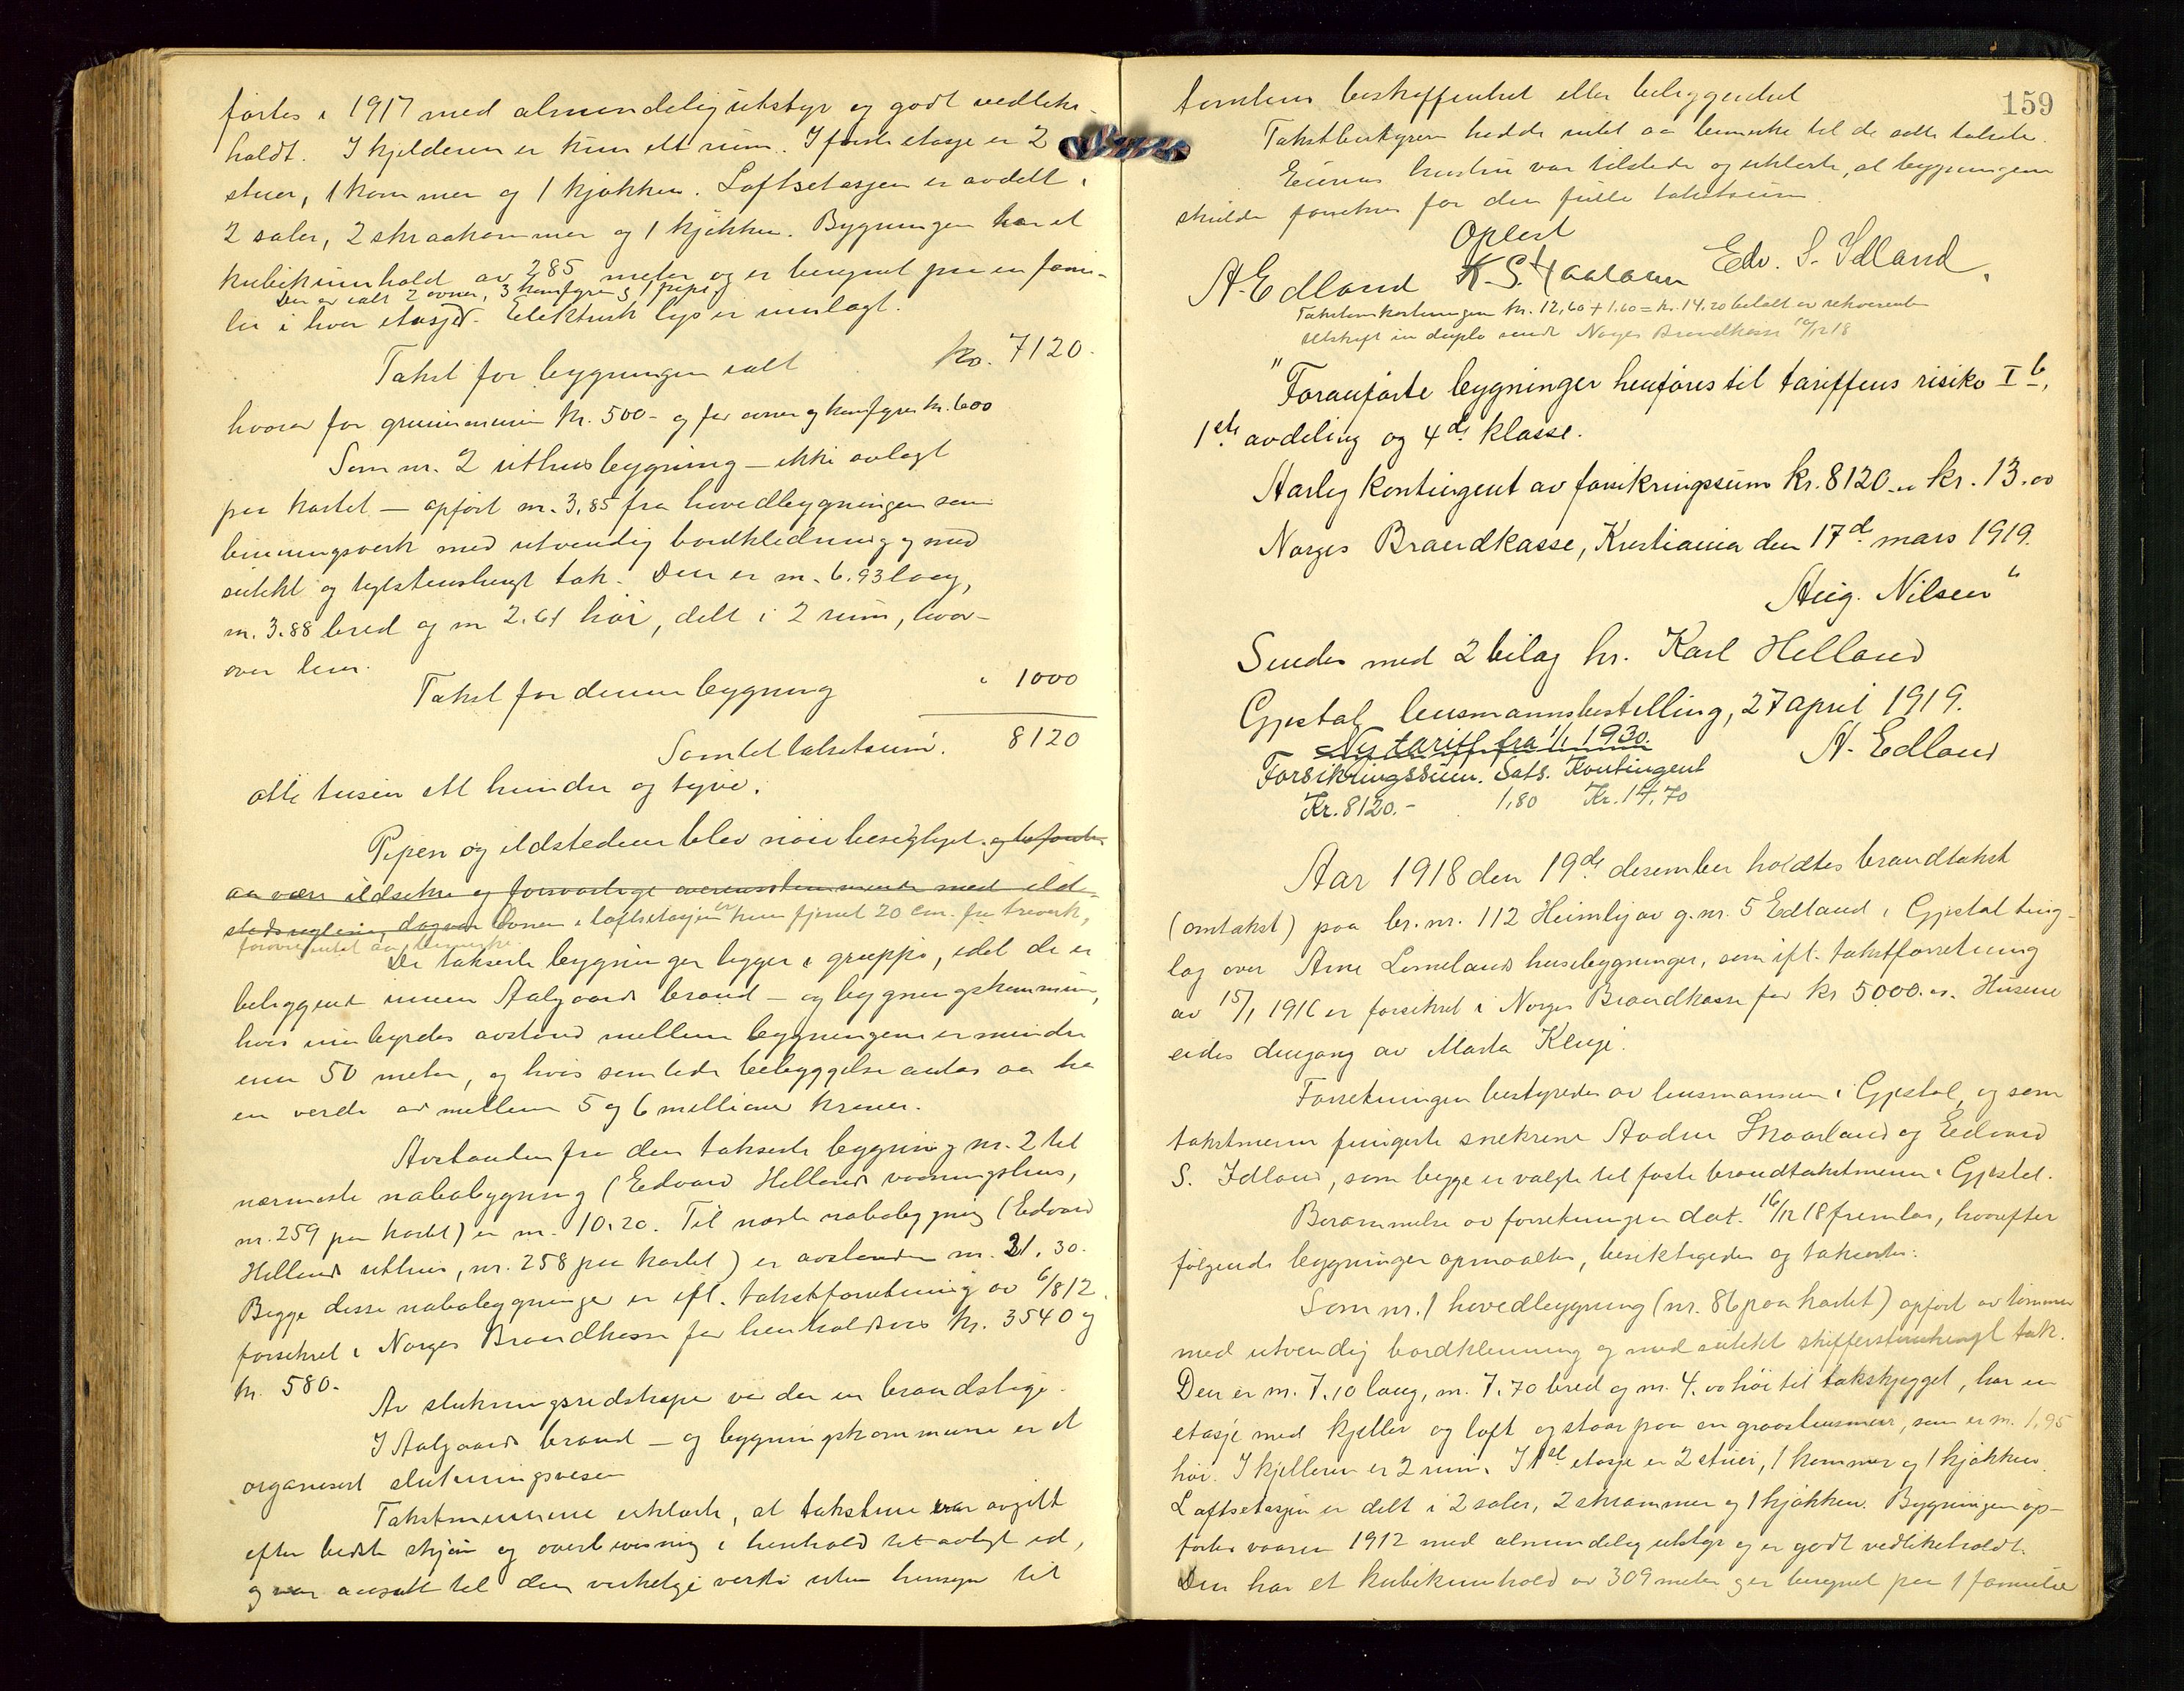 førtes i 1917 med almindelig utstyr og godt vedlike-
holdt. I kjelderen er kun ett rum. I første etage er 2
stuer, 1 kammer og 1 kjøkken. Loftsetasjen er avdelt i
2 saler, 2 skraakammer og 1 kjøkken. Bygningen har et
kubikinnhold av 285 meter og er beregnet paa en fami-
Der er ialt 2 ovner, 3 komfyrer og 1 pipe
lie i hver etasje. Elektrisk lys er innlagt.
Takst for bygningen ialt kr. 7120.
hvorav for grunnmuren kr. 500- og for ovner og komfyrer kr. 600
Som nr. 2 uthusbygning - ikke avlagt
paa kartet - opført m. 3,85 fra hovedbygningen som
binningsverk med utvendig bordkledning og med
sutekt og teglstenshengt tak. Den er m. 6.93 lang,
m. 3.88 bred og m 2.61 høi, delt i 2 rum, hvor-
over lem.
Takst for denne bygning " 1000
Samlet takstsum. 8120
otte tusen ett hundre og tyve.
Pipen og ildstedene blev nøie besigtiget og befundet
aa være ildsikre og forsvarlige overensstemmende med ild-
stedsregleine, dog var ovnen i loftsetasjen kun fjernet 20 cm. fra treverk,
forøvrig intet aa bemerke.
De takserte bygninger ligger i gruppe, idet de er
beliggende innen Aalgaards brand- og bygningskommune,
hvis innbyrdes avstand mellem bygningene er mindre
enn 50 meter, og hvis samlede bebyggelse antas aa ha
en verdi av mellem 5 og 6 millioner kroner.
Avstanden fra den takserte bygning nr. 2 til
nærmeste nabobygning (Edvard Hellands vaaningshus,
nr. 259 paa kartet) er m. 10.20. Til næste nabobygning (Edvard
Hellands uthus, nr. 258 paa kartet) er avstanden m. 21.30.
Begge disse nabobygninger er ifl. takstforretning av 6/8 12
forsikret i Norges Brandkasse for henholdsvis kr. 3540 og
kr. 580.
Av slukningsredskaper var der en brandstige.
I Aalgaards brand- og bygningskommune er et
organisert slukningsvesen
Takstmennene erklærte, at takstene var avgitt
efter bedste skjøn og overbevisning i henhold til avlagt ed,
og var ansatt til den virkelige verdi uten hensyn til
159
tomtens beskaffenhet eller beliggenhet
Takstbestyreren hadde intet aa bemerke til de satte takster.
Eierens hustru var tilstede og erklærte, at bygningene
skulde forsikres for den fulle takstsum.
Oplest
A. Edland K. S. Edv. S. Idland.
Takstomkostningen kr. 12,60 + 1.60 = kr. 14.20 betalt av rekvirenten
Utskrift in duplo sendt Norges Brandkasse 19/12 18
"Foranførte bygninger henføres til tariffens risiko I b,
1ste avdeling og 4de klasse.
Aarlig kontingent av forsikringssum kr. 8120.00 kr. 13.00
Norges Brandkasse, Kristiania den 17de mars 1919.
Aug. Nilsen"
Sendes med 2 bilag hr. Karl Helland
Gjestal lensmannsbestilling, 27 april 1919.
A. Edland
Ny tariff fra 1/1 1930.
Forsikringssum. Sats. Kontingent
Kr. 8120.- 1,80 Kr. 14,70
Aar 1918 den 19de desember holdtes brandtakst
(omtakst) paa br. nr. 112 Heimly av g. nr. 5 Edland i Gjestal ting-
lag over Arne Lomelands husebygninger, som ifl. takstforretning
av 15/1 1916 er forsikret i Norges Brandkasse for kr 5000.00. Husene
eides dengang av Marta Kluge.
Forretningen bestyredes av lensmannen i Gjestal, og som
takstmenn fungerte snekrene Aadne Skaarland og Edvard
S. Idland, som begge er valgte til faste brandtakstmenn i Gjestal.
Berammelse av forretningen dat. 16/12 18 fremlas, hvorefter
følgende bygninger opmaaltes, besiktigedes og takserte:
Som nr. 1 hovedbygning (nr. 86 paa kartet) opført av tømmer
med utvendig bordkledning og med sutekt skifferstenshengt tak.
Den er m. 7.10 lang, m. 7.70 bred og m. 4.00 høi til takskjegget, har en
etasje med kjeller og loft og staar paa en graastensmur, som er m. 1,95
høi. I kjelleren er 2 rum. I 1ste etasje er 2 stuer, 1 kammer og 1 kjøkken.
Loftsetasjen er delt i 2 saler, 2 skrammer og 1 kjøkken. Bygningen op-
førtes vaaren 1912 med almindelig utstyr og er godt vedlikeholdt.
Den har et kubikinnhold av 309 meter og er beregnet paa 1 familie